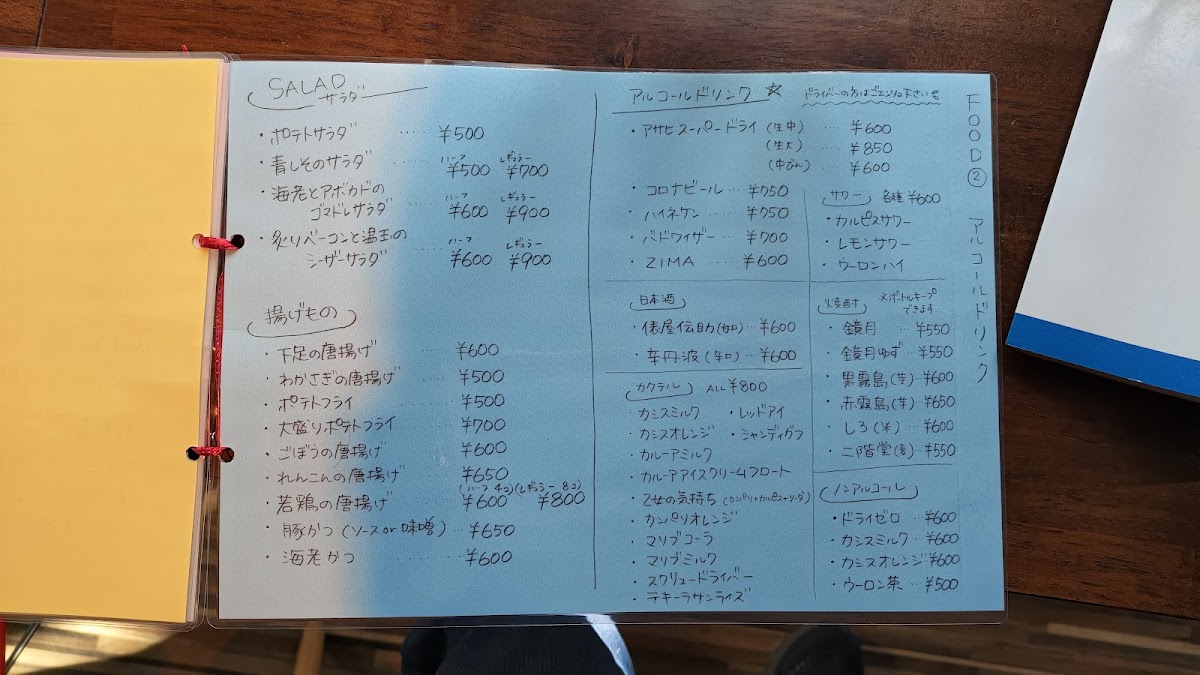 SALAD
サラダ
・ポテトサラダ ····· ¥500
・青しそのサラダ ····· ハーフ ¥500 レギュラー ¥700
・海老とアボカドの
ゴマドレサラダ ハーフ ¥600 レギュラー ¥900
・炙りベーコンと温玉の
シーザーサラダ ハーフ ¥600 レギュラー ¥900
揚げもの
・下足の唐揚げ ····· ¥600
・わかさぎの唐揚げ ····· ¥500
・ポテトフライ ····· ¥500
・大盛りポテトフライ ··· ¥700
・ごぼうの唐揚げ ····· ¥600
・れんこんの唐揚げ ····· ¥650
・若鶏の唐揚げ ··· (ハーフ 4コ) ¥600 (レギュラー 8コ) ¥800
・豚かつ (ソース or 味噌) ··· ¥650
・海老かつ ····· ¥600
アルコールドリンク ☆
ドライバーの方はごエンリョ下さい
・アサヒスーパードライ (生中) ···· ¥600
(生大) ··· ¥850
(中びん) ··· ¥600
・コロナビール ··· ¥750
・ハイネケン ····· ¥750
・バドワイザー ··· ¥700
・ZIMA ····· ¥600
サワー 各種 ¥600
・カルピスサワー
・レモンサワー
・ウーロンハイ
日本酒
・俵屋伝助(甘口) ··· ¥600
・辛丹波 (辛口) ··· ¥600
焼酎 ※ボトルキープ
できます.
・鏡月 ··· ¥550
・鏡月ゆず ··· ¥550
・黒霧島(芋) ·· ¥600
・赤霧島(芋) ·· ¥650
・しろ (米) ··· ¥600
・二階堂(麦) ·· ¥550
カクテル ALL ¥800
・カシスミルク ・レッドアイ
・カシスオレンジ ・シャンディガフ
・カルーアミルク
・カルーアアイスクリームフロート
・乙女の気持ち (カンパリ+カルピス+ソーダ)
・カンパリオレンジ
・マリブコーラ
・マリブミルク
・スクリュードライバー
・テキーラサンライズ
ノンアルコール
・ドライゼロ ··· ¥600
・カシスミルク ·· ¥600
・カシスオレンジ ¥600
・ウーロン茶 ··· ¥500
FOOD② アルコールドリンク